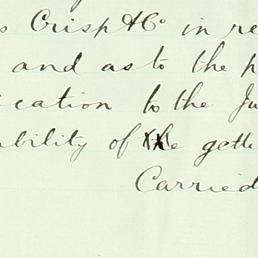 Crisp & Co in re
and as to the p
ication to the Ju
bility of the gette
Carried